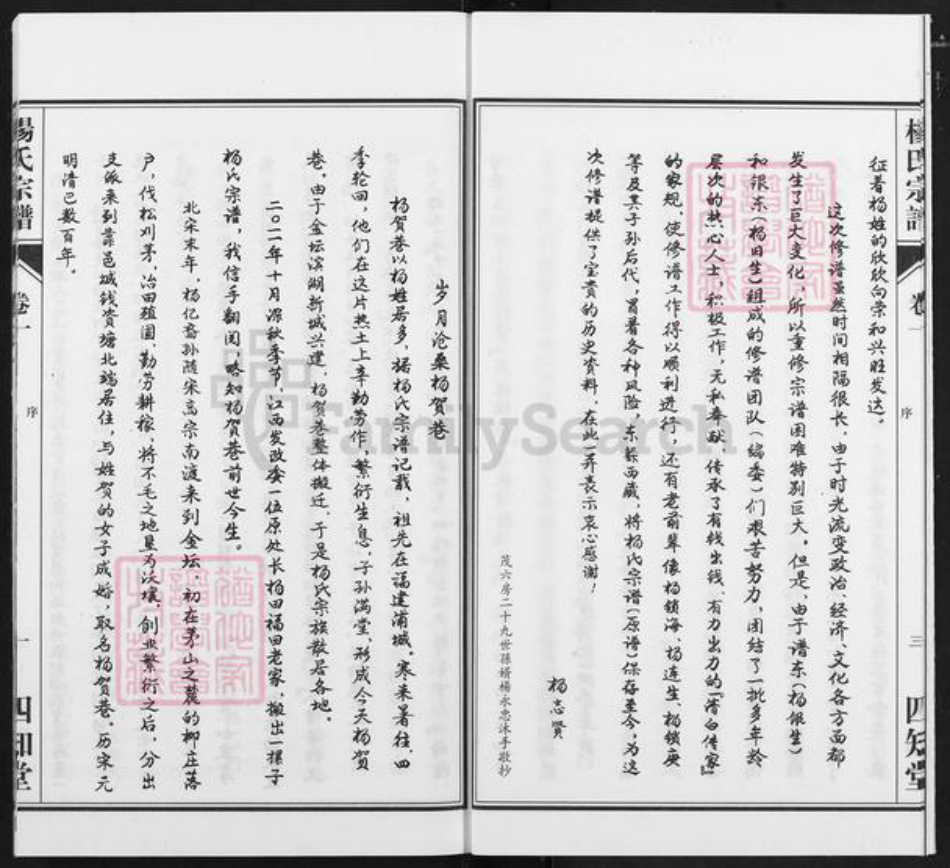 征着杨姓的欣欣向荣和兴旺发达。
这次修谱虽然时间相隔很长、由于时光流变政治、经济、文化各方面都
发生了巨大变化、所以重修宗谱困难特别巨大，但是、由于谱东（杨银生）
和银东（杨田生）组成的修谱团队（编委）们艰苦努力，团结了一批多年龄
层次的热心人士，积极工作，无私奉献、传承了有钱出钱、有力出力的『清白传家』
的家规、使修谱工作得以顺利进行，还有老前辈像杨锁海、杨连生、杨锁庚
等及其子孙后代，冒着各种风险，东躲西藏，将杨氏宗谱（原谱）保存至今，为这
次修谱提供了宝贵的历史资料，在此一并表示衷心感谢！
杨志贤
茂六房二十九世孫婿楊永忠沐手敬抄
岁月沧桑杨贺巷
杨贺巷以杨姓居多，据杨氏宗谱记载，祖先在福建浦城。寒来暑往，四
季轮回，他们在这片热土上辛勤劳作，繁衍生息，子孙满堂，形成今天杨贺
巷。由于金坛滨湖新城兴建，杨贺巷整体搬迁，于是杨氏宗族散居各地。
二〇一一年十月深秋季节，江西发改委一位原处长杨田福回老家，搬出一摞子
杨氏宗谱，我信手翻阅，略知杨贺巷前世今生。
北宋末年，杨亿裔孙随宋高宗南渡来到金坛，初在茅山之麓的柳庄落
户，伐松刈茅，冶田殖园，勤劳耕稼，将不毛之地垦为沃壤，创业繁衍之后，分出
支派来到靠邑城钱资塘北端居住，与姓贺的女子成婚，取名杨贺巷。历宋元
明清已数百年。
楊氏宗譜
卷一
序
三
四知堂
楊氏宗譜
卷一
序
一
四知堂
FamilySearch